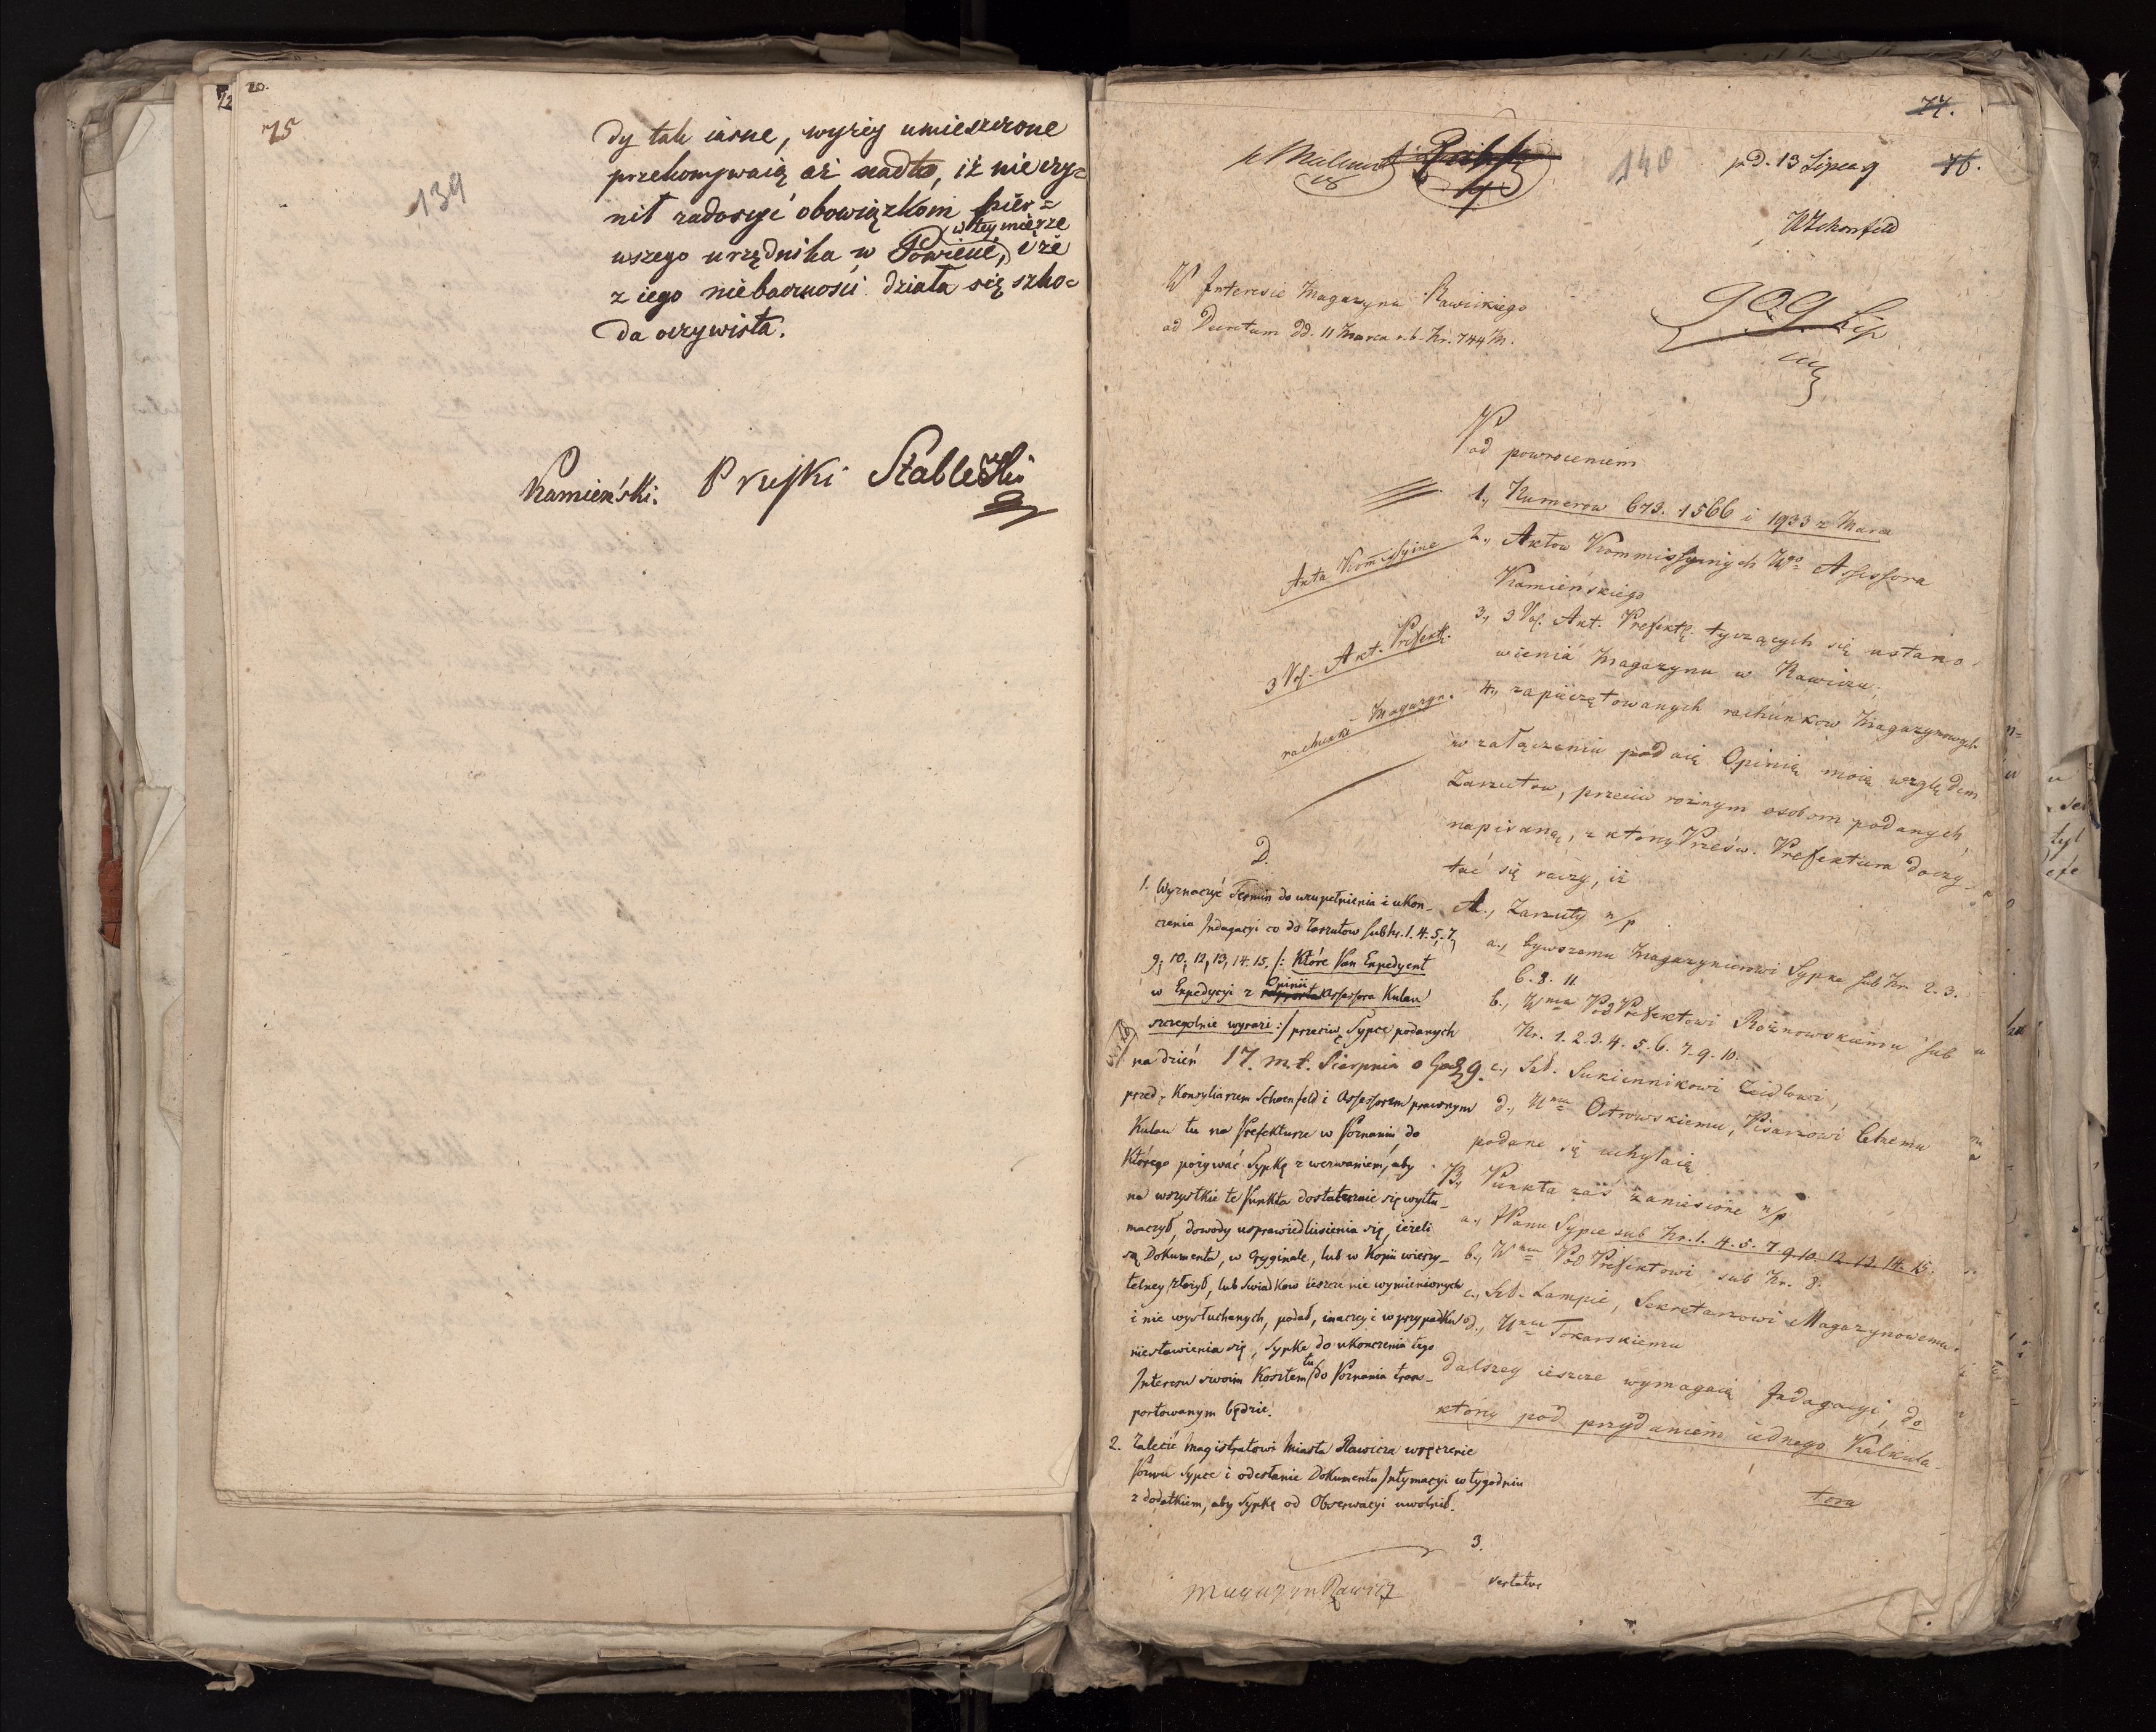 20.
75
139
dy tak iasne, wyżey umieszczone
przekonywaią aż nadto, iż nie czy=
nił zadosyć obowiązkom pier=
wszego urzędnika w Powiecie, w tey mierze i że
z iego niebacznosci działa się szko=
da oczywista.
Kamieński. Pruski Stablewski
77.
140
pd. 13 Lipca 9
76.
WSchonfeld
W Interesie Magazynu Rawickiego
ad Decretum dd. 11 Marca r. b. Nr. 744 M.
909 Lip
Pod powroceniem
1., Numerow 673. 1566 i 1933 z Marca
2., Aktow Kommissyinych Wgo Assessora
Kamieńskiego
Akta Komissyine
3., 3 Vol. Akt. Prefektr. tyczących się ustano-
wienia Magazynu w Rawiczu;
3 Vol. Akt. Prefektr.
4., zapieczętowanych rachunkow Magazynowych
rachunki Magazyn.
w załączeniu podaię Opinię moię względem
Zarzutow, przeciw rożnym osobom podanych,
napisaną, z ktorey Prześw. Prefektura doczy-
tać się raczy, iż
A., Zarzuty n/p
a., bywszemu Magazynierowi Sypke sub Nr. 2. 3.
6. 8. 11.
b., Wmu Pod Prefektowi Rożnowskiemu sub
Nr. 1. 2. 3. 4. 5. 6. 7. 9. 10.
c., Szl. Sukiennikowi Zeidlowi,
d., Umu Ostrowskiemu, Pisarzowi Celnemu
podane się uchylaią
B., Punkta zaś zaniesione n/p
a., Panu Sypce sub Nr. 1. 4. 5. 7. 9. 10. 12. 13. 14. 15.
b., Wmu Pod Prefektowi sub Nr. 8.
c., Szl. Lampie, Sekretarzowi Magazynowemu
d., Umu Tokarskiemu
dalszey ieszcze wymagaią Indagacyi, do
ktorey pod przydaniem iednego Kalkula-
tora
D.
1. Wyznaczyć Termin do uzupełnienia i ukon-
czenia Indagacyi co do Zarzutow sub Nr. 1. 4. 5. 7.
9, 10, 12, 13, 14. 15. /: Które Pan Expedyent
w Expedycyi z Opinii Assessora Kulau
szczegolnie wyrazi :/ przeciw Sypce podanych
na dzień 17. m. t. Sierpnia o God 9.
przed Konsyliarzem Schoenfeld i Assessorem prawnym
Kulau tu na Prefekturze w Poznaniu, do
Którego pozywać Sypkę z wezwaniem, aby
na wszystkie te Punkta dostatecznie się wytłu-
maczył, dowody usprawiedliwienia się, ieżeli
są Dokumenta, w Oryginale, lub w Kopii wierzy-
telney złożył, lub Swiadkow ieszcze nie wymienionych
i nie wysłuchanych, podał, inaczey i w przypadku
niestawienia się, Sypka do ukonczenia tego
Interesu swoim Kosztem tu do Poznania trans-
portowanym będzie.
2. Zalecić Magistratowi Miasta Rawicza wręczenie
Pozwu Sypce i odesłanie Dokumentu Intymacyi w tygodniu
z dodatkiem, aby Sypkę od Obserwacyi uwolnił.
3.
vertatur
Magazyn Rawicz